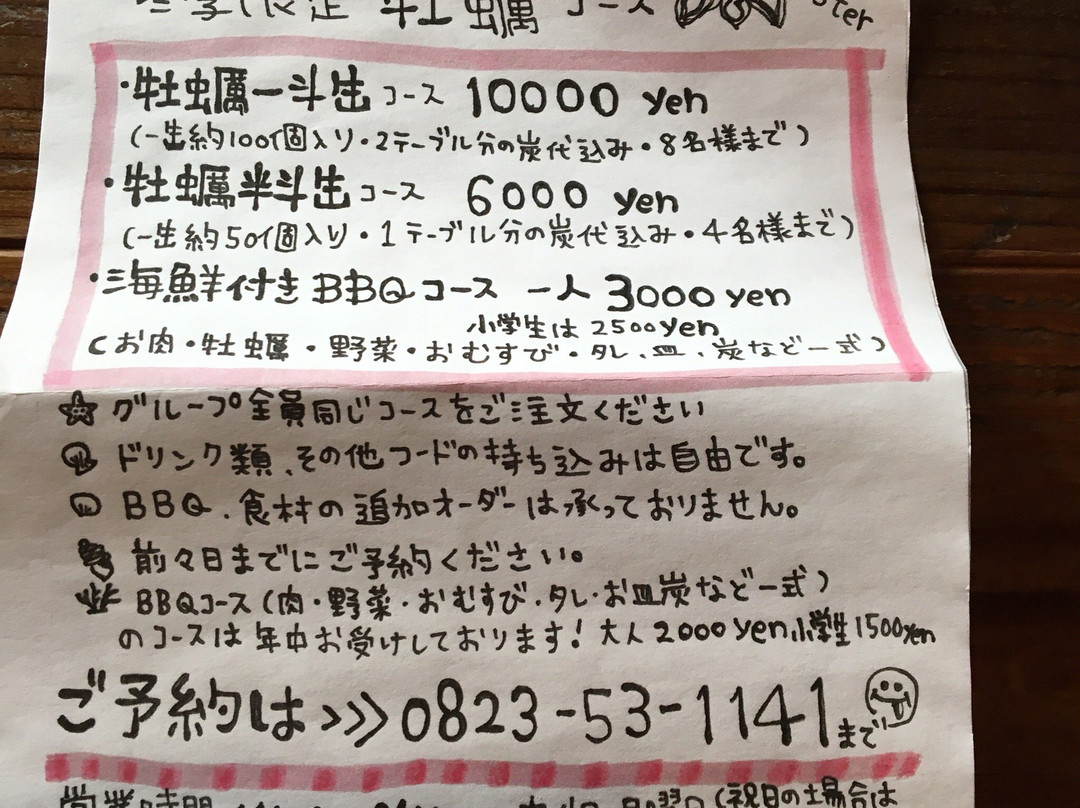 限定 牡蠣 コース
・牡蠣一斗缶コース 10000 yen
(一缶約100個入り・2テーブル分の炭代込み・8名様まで)
・牡蠣半斗缶コース 6000 yen
(一缶約50個入り・1テーブル分の炭代込み・4名様まで)
・海鮮付きBBQコース 一人 3000 yen
小学生は 2500yen
(お肉・牡蠣・野菜・おむすび・タレ、皿、炭など一式)
グループ全員同じコースをご注文ください
ドリンク類、その他フードの持ち込みは自由です。
BBQ、食材の追加オーダーは承っておりません。
前々日までにご予約ください。
BBQコース(肉・野菜・おむすび・タレ・お皿炭など一式)
のコースは年中お受けしております! 大人2000yen小学生1500yen
ご予約は>>>0823-53-1141まで
営業時間 (祝日の場合は